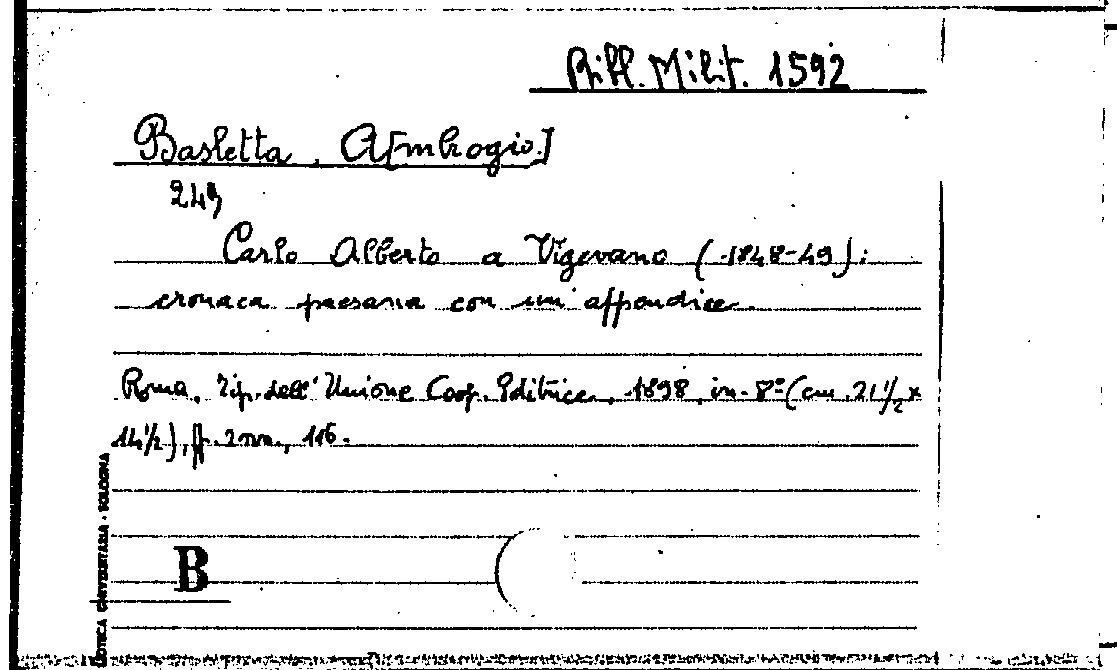 Bibl. Milit. 1592
Basletta, A[mbrogio.]
249
Carlo Alberto a Vigevano (1848-49):
cronaca paesana con un' appendice.
Roma, Tip. dell' Unione Coop. Editrice, 1898, in-8º (cm. 21½ x
14½), pp. 2 nn., 116.
B
OTECA UNIVERSITARIA - BOLOGNA